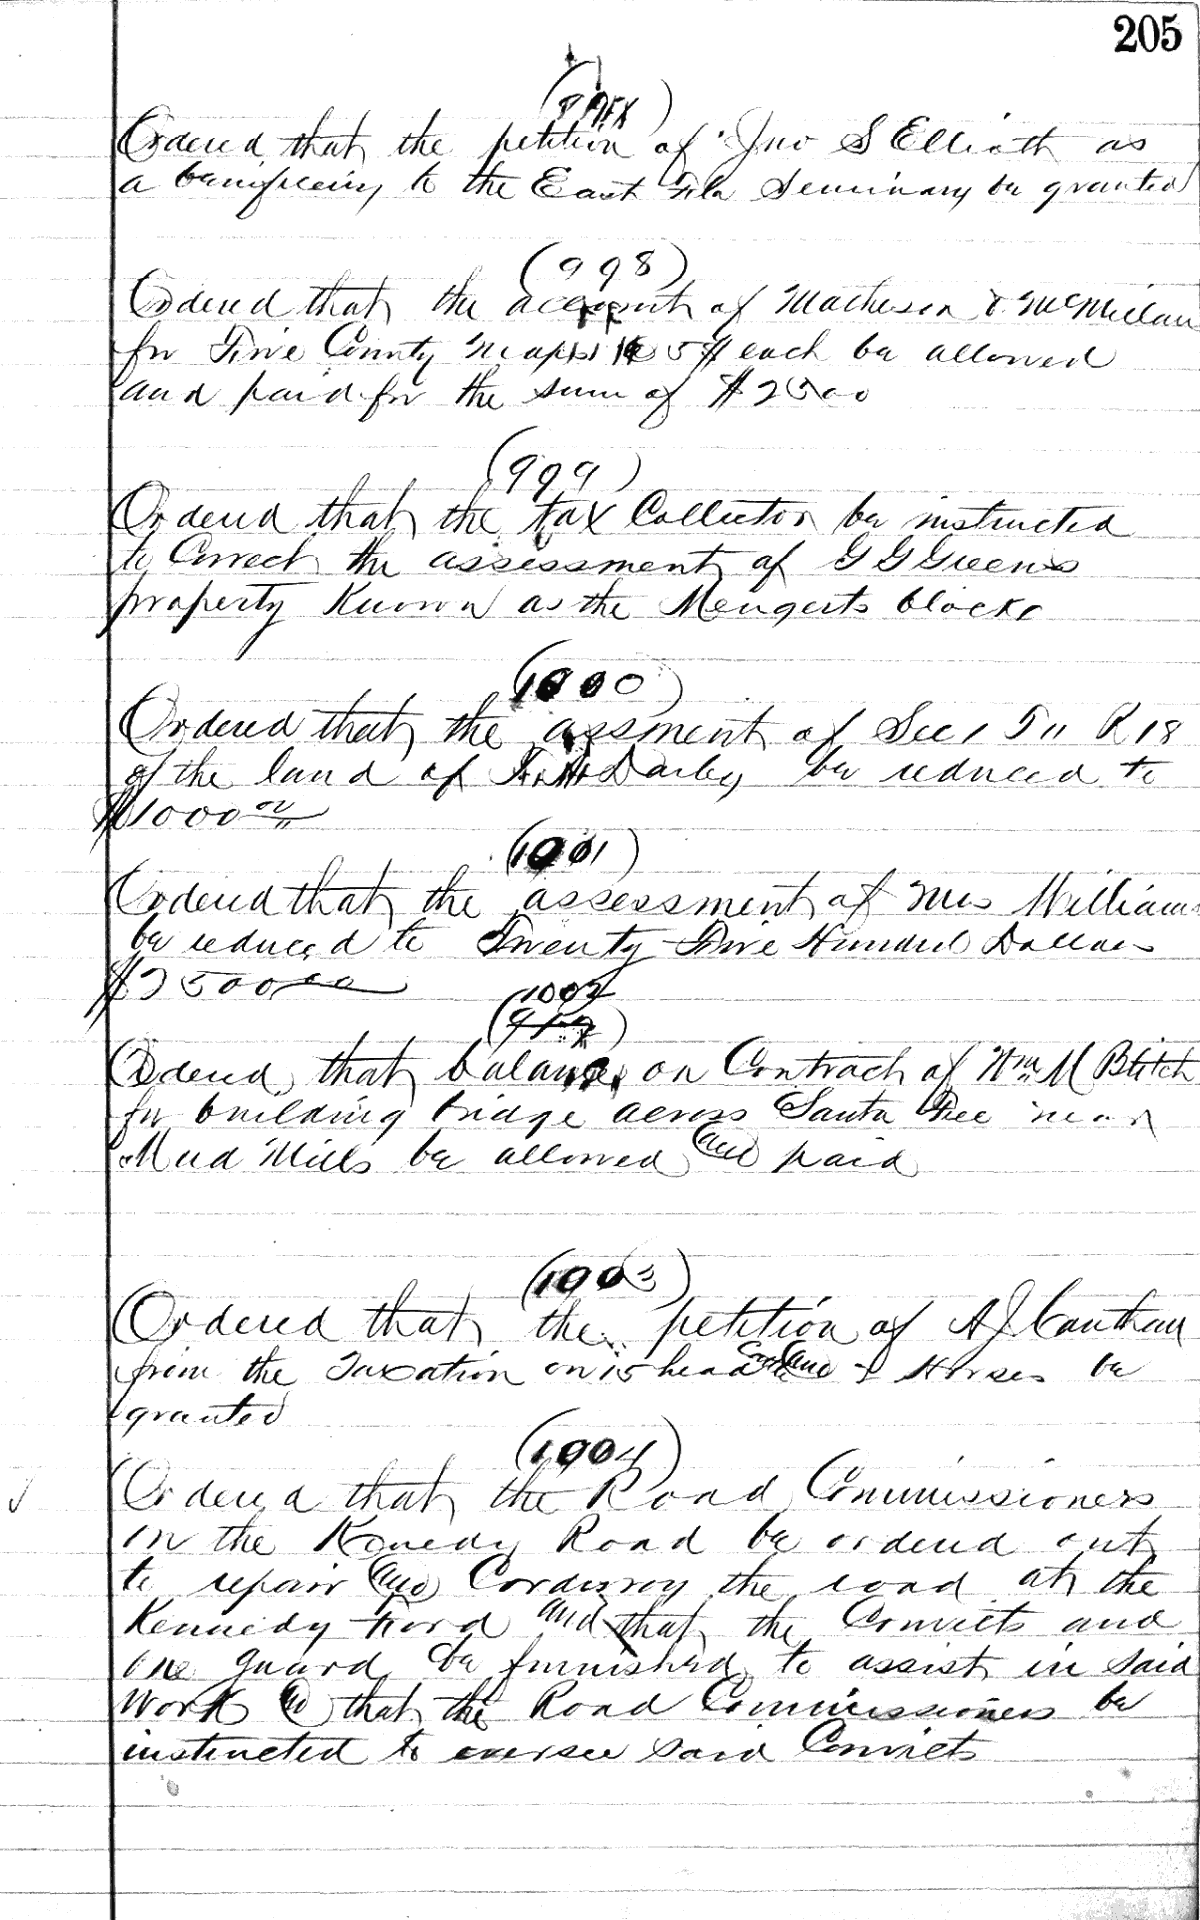 205
Ordered that the petition of Jno S Elliott as
a benificiary to the East Fla Seminary be granted
(998)
Ordered that the account of Matheson & McMillan
for Five County Maps 5$ each be allowed
and paid for the sum of $2500
(999)
Ordered that the tax Collector be instructed
to Correct the assessment of G G Greens
property Known as the Mengerts block
(1000)
Ordered that the assment of Sec 1 T 11 R 18
of the land of Darby be reduced to
$1000 00
(1001)
Ordered that the assessment of Mrs Williams
be reduced to Twenty Five Hundred Dollars
$2500 00
1002
Ordered that balance on Contract of Wm M Blitch
for building bridge across Santa Fee near
Mud Mills be allowed and paid
(1003)
Ordered that the petition of A J Cauthen
from the Taxation on 15 head & Horses be
granted
(1004)
Ordered that the Road Commissioners
on the Kenedy Road be ordered out
to repair and Corduroy the road at the
Kennedy Ford and that the Convicts and
one guard be furnished to assist in said
Work and that the Road Commissioners be
instructed to oversee said Convicts